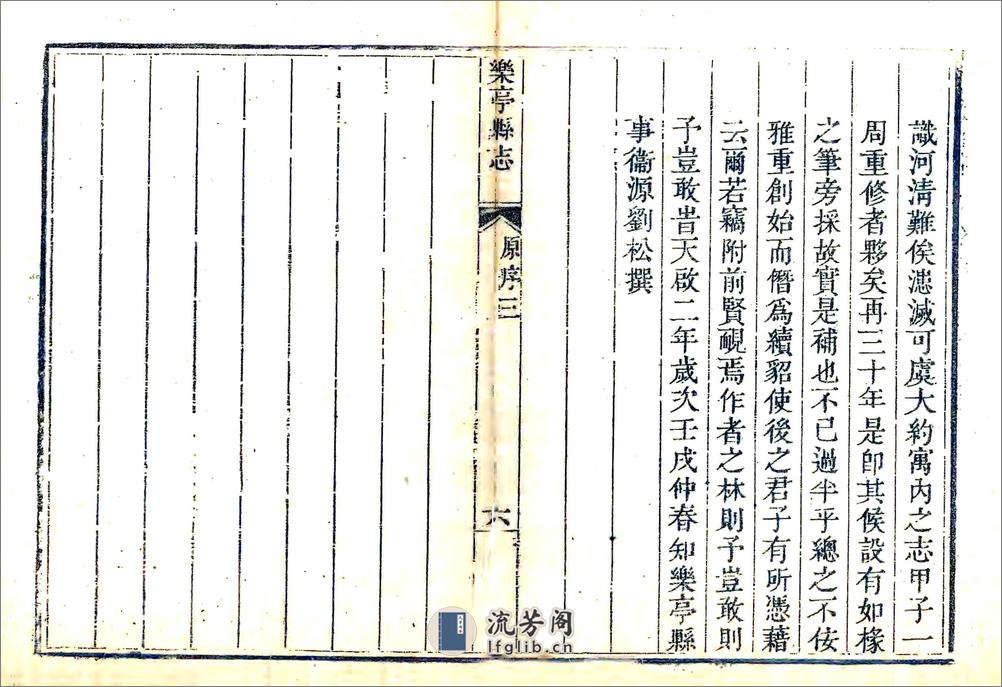 識河清難俟漶滅可虞大約寓內之志甲子一
周重修者夥矣再三十年是即其候設有如椽
之筆旁採故實是補也不已過半乎總之不佞
雅重創始而僭爲續貂使後之君子有所憑藉
云爾若竊附前賢靦焉作者之林則予豈敢則
予豈敢旹天啟二年歲次壬戌仲春知樂亭縣
事衞源劉松撰
樂亭縣志
原序三
六
流芳阁
lfglib.cn